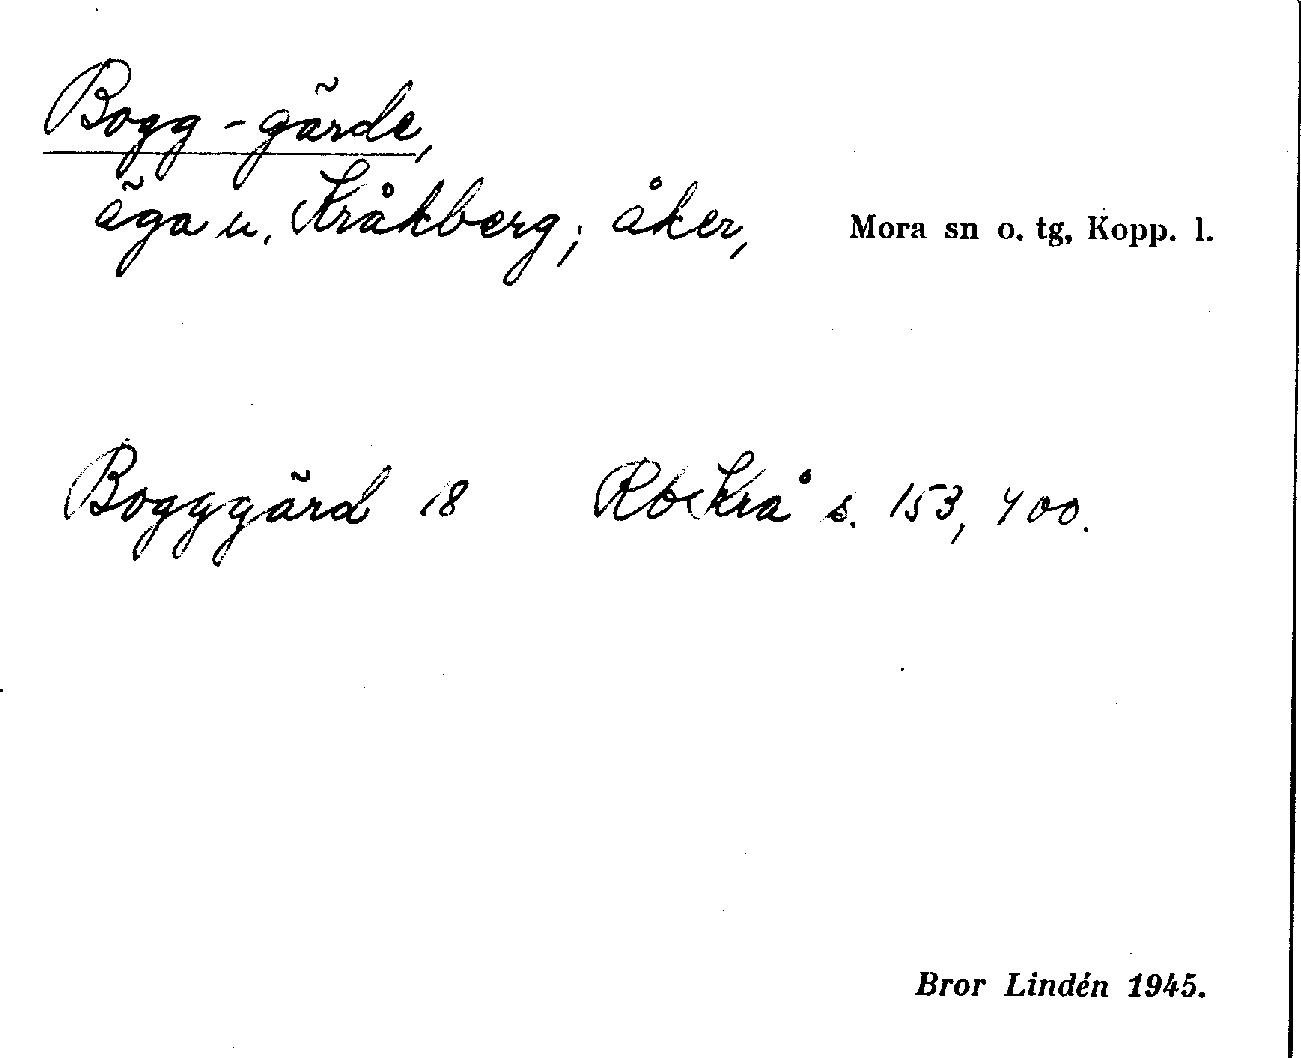 Bogg-gärde,
äga u. Kråkberg; åker, Mora sn o. tg, Kopp. l.
Bogggärd 18 RbKrå s. 153, 400.
Bror Lindén 1945.